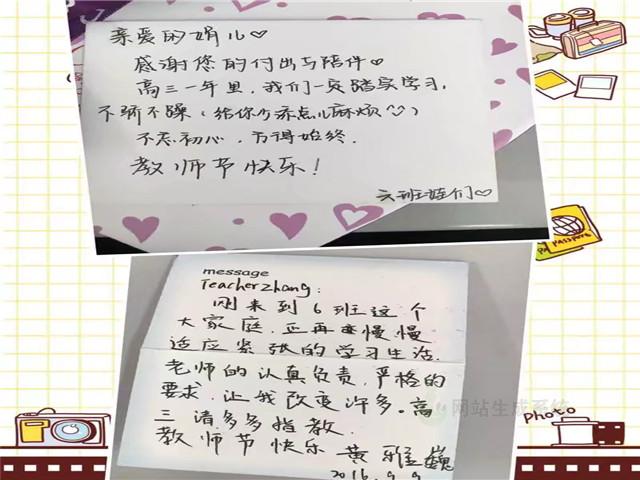 亲爱的娟儿♡
感谢您的付出与陪伴♡
高三一年里，我们一定踏实学习，
不骄不躁（给你少添点儿麻烦）
不忘初心，方得始终．
教师节快乐！
六班娃们♡
message
Teacher zhang：
刚来到6班这个
大家庭，正再要慢慢
适应紧张的学习生活．
老师的认真负责，严格的
要求，让我改变许多。高
三请多多指教．
教师节快乐 黄雅巍
2016.9.9
网站生成系统
photo
PASSPORT